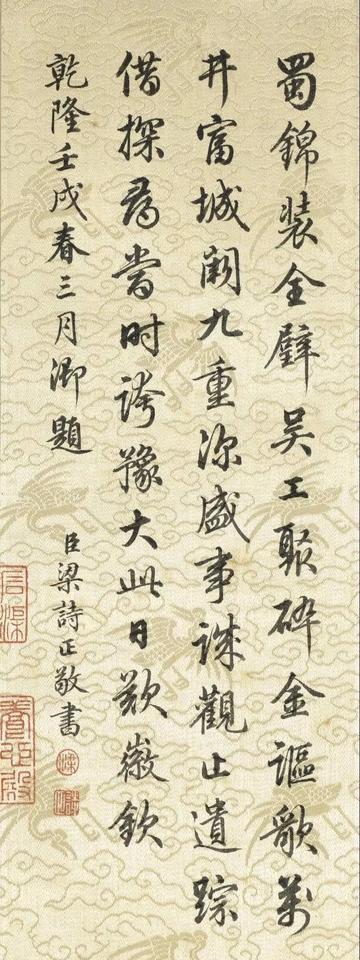 蜀錦装全壁吴工聚碎金謳歌萬
井富城闕九重深盛事誠觀止遺踪
借探尋當時誇豫大此日歎徽欽
乾隆壬戌春三月御題
臣梁詩正敬書